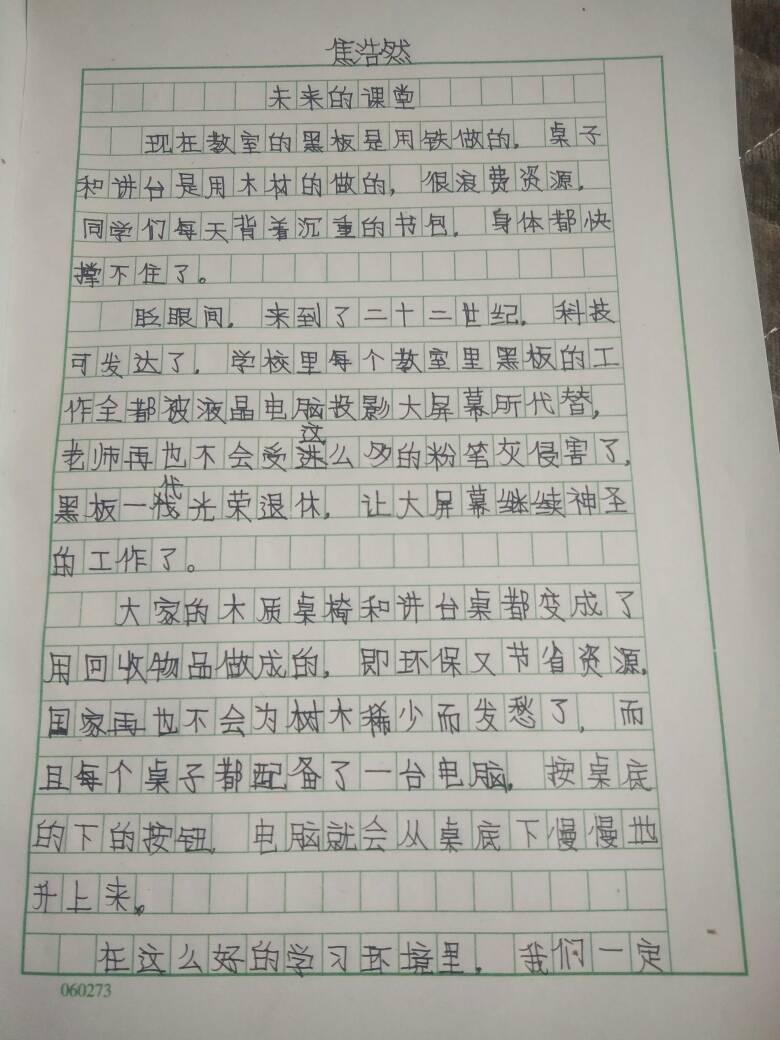 焦浩然
未来的课堂
现在教室的黑板是用铁做的，桌子
和讲台是用木材的做的，很浪费资源，
同学们每天背着沉重的书包，身体都快
撑不住了。
眨眼间，来到了二十二世纪，科技
可发达了，学校里每个教室里黑板的工
作全都被液晶电脑投影大屏幕所代替，
老师再也不会受这么多的粉笔灰侵害了，
黑板一代光荣退休，让大屏幕继续神圣
的工作了。
大家的木质桌椅和讲台桌都变成了
用回收物品做成的，即环保又节省资源，
国家再也不会为树木稀少而发愁了，而
且每个桌子都配备了一台电脑，按桌底
的下的按钮，电脑就会从桌底下慢慢地
升上来。
在这么好的学习环境里，我们一定
060273